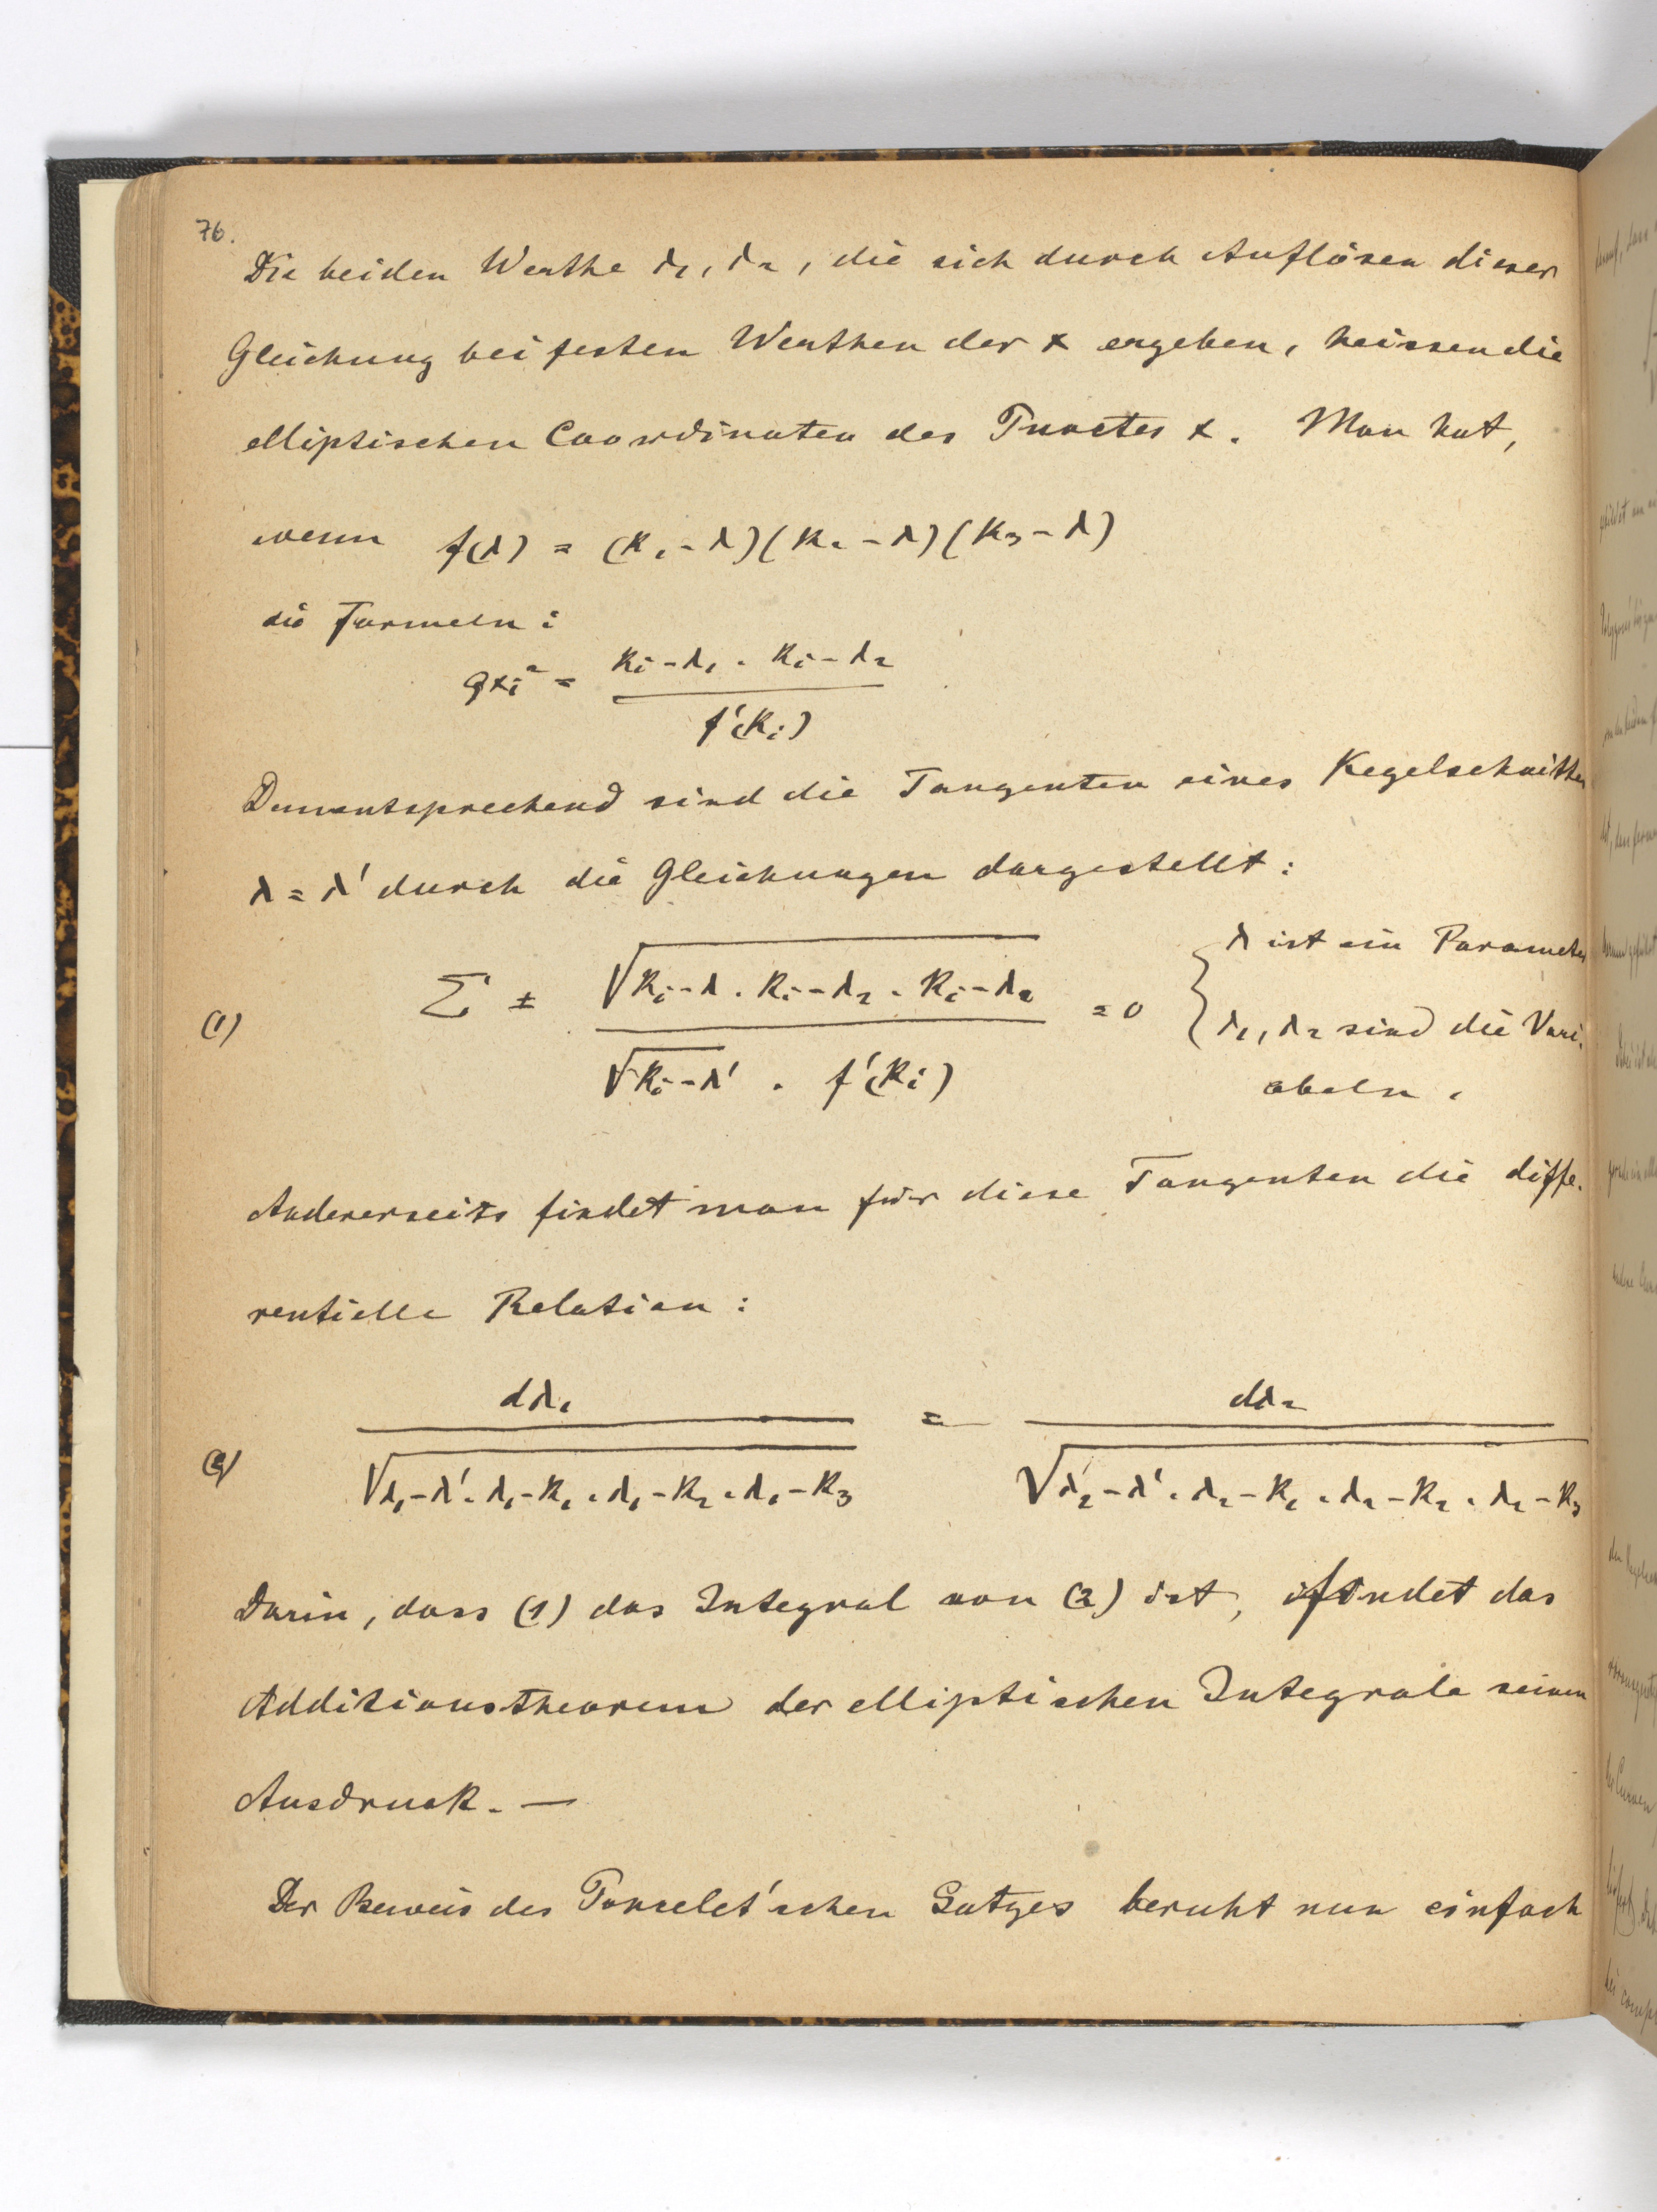 76.
Die beiden Werthe λ₁, λ₂, die sich durch Auflösen dieser
Gleichung bei festen Werthen der x ergeben, heissen die
elliptischen Coordinaten des Punctes x. Man hat,
wenn f(λ) = (k₁-λ)(k₂-λ)(k₃-λ)
die Formeln:
ϱxᵢ² = kᵢ-λ₁ . kᵢ-λ₂ / f'(kᵢ)
Dementsprechend sind die Tangenten eines Kegelschnittes
λ = λ' durch die Gleichungen dargestellt:
(1) Σ ± √kᵢ-λ . kᵢ-λ₁ . kᵢ-λ₂ / √kᵢ-λ' . f'(kᵢ) = 0 { λ ist ein Parameter
λ₁, λ₂ sind die Vari-
abeln.
Andererseits findet man für diese Tangenten die diffe-
rentielle Relation:
(2) dλ₁ / √λ₁-λ' . λ₁-k₁ . λ₁-k₂ . λ₁-k₃ = dλ₂ / √λ₂-λ' . λ₂-k₁ . λ₂-k₂ . λ₂-k₃
Darin, dass (1) das Integral von (2) ist, findet das
Additionstheorem der elliptischen Integrale seinen
Ausdruck. —
Der Beweis des Poncelet'schen Satzes beruht nun einfach